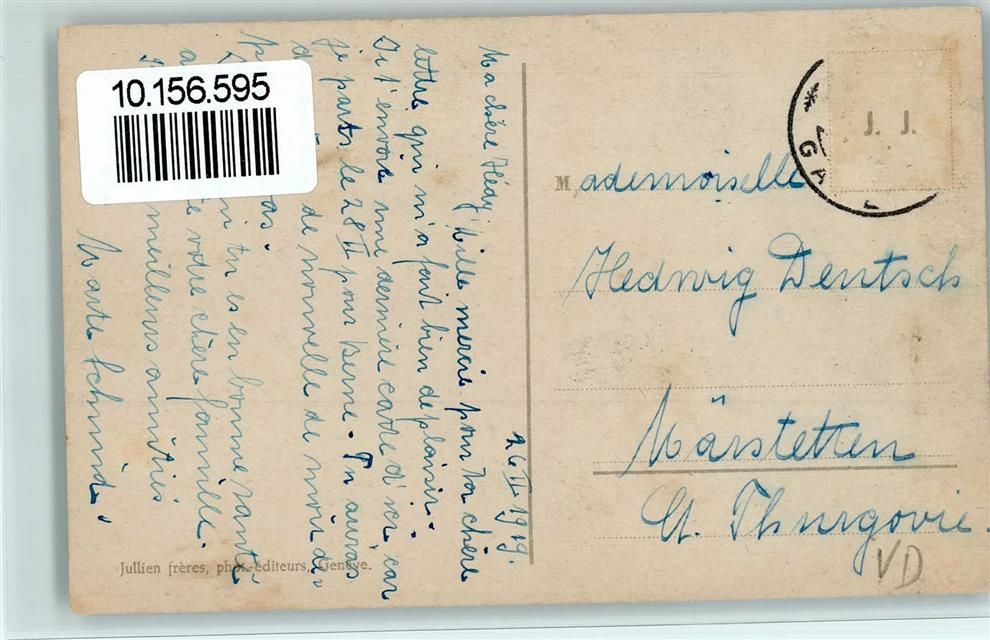 10.156.595
26 II 1919.
Ma chère Hédy! Mille mercis pour ta chère
lettre qui m'a fait bien de plaisir.
Ici t'envoie une dernière carte d'ici, car
je parts le 28 II pour Berne. Tu auras
de nouvelle de moi de
pas.
tu es en bonne santé
votre chère famille.
meilleurs amitiés
Marte Schmid.
Jullien frères, phot.-éditeurs, Genève.
J. J.
GAL
Mademoiselle
Hedwig Deutsch
Märstetten
Ct. Thurgovie.
VD